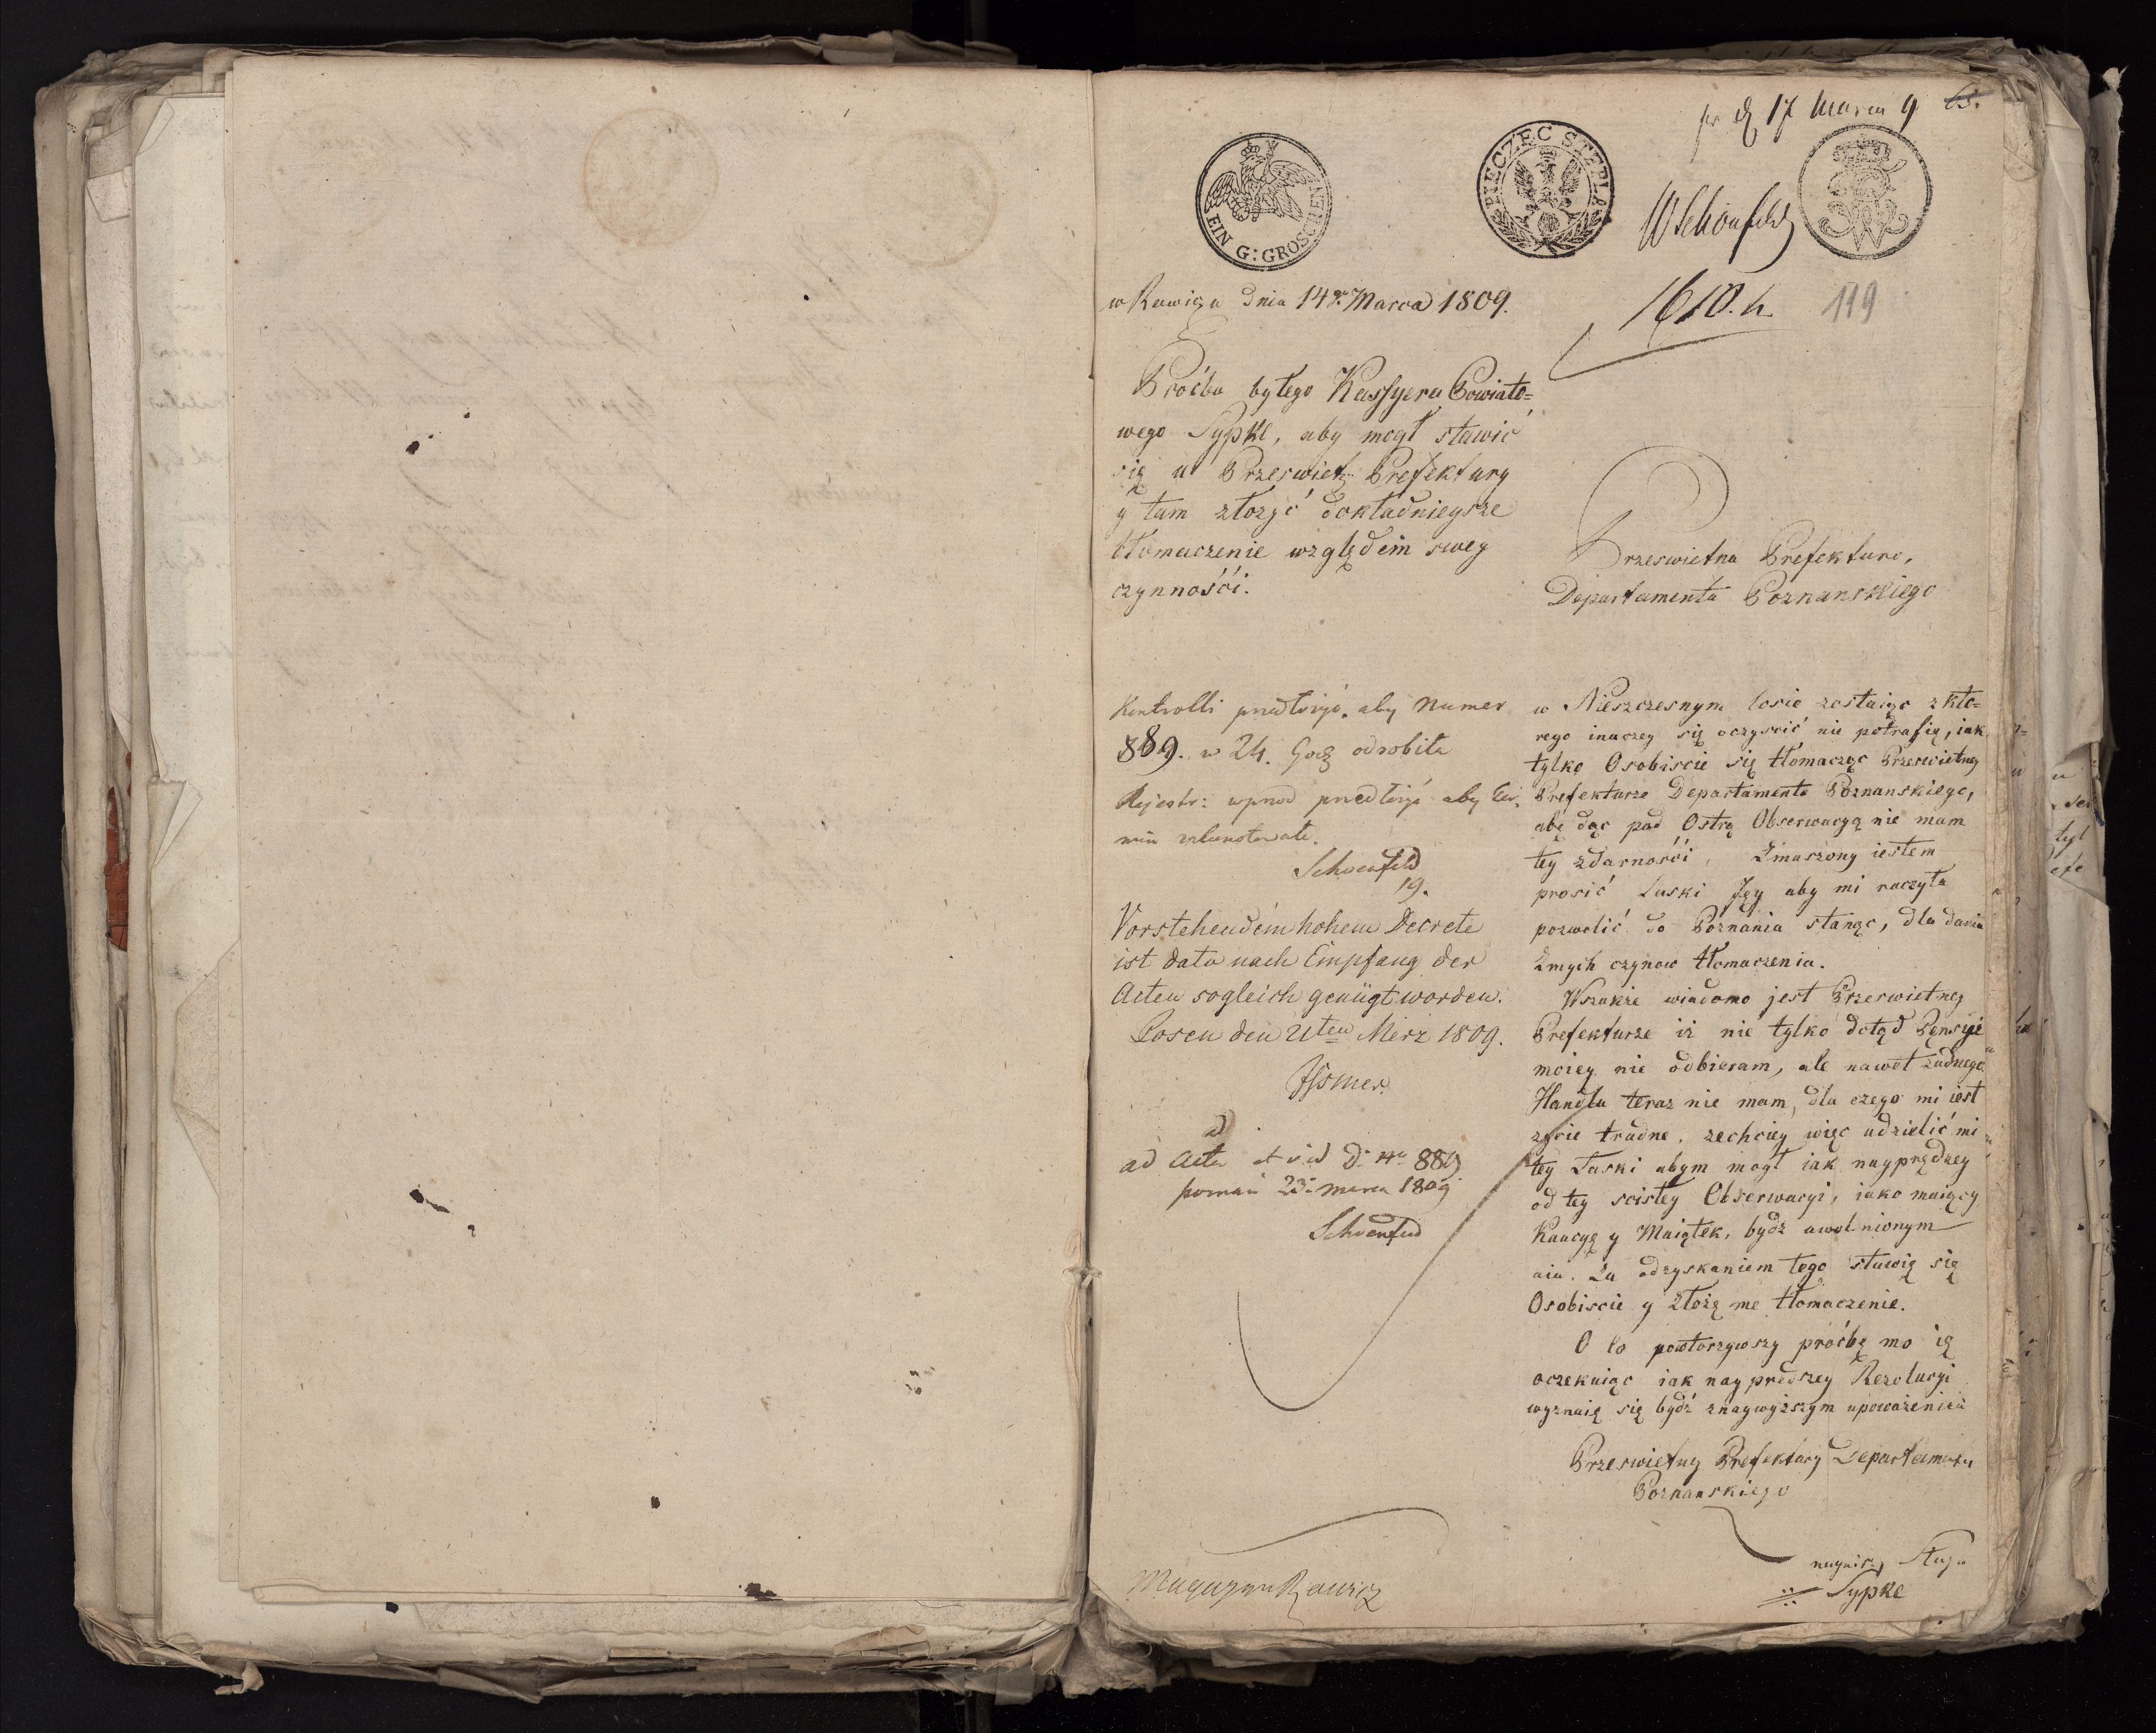 17 Marca 9 63.
EIN G: GROSCHEN
PIECZĘC STEPLA
WSchönfeld
w Rawiczu dnia 14go Marca 1809.
1610. h. 119
Proćba byłego Kassyera Powiato=
wego Sypke, aby mogł stawić
się u Przeswietney Prefektury
y tam złozyć dokładnieysze
tłomaczenie względem swey
czynnośći.
Przeswietna Prefekturo,
Departamentu Poznanskiego
Kontrolli przedłożyć, aby Numer
889. w 24. Godz odrobiła
Rejestr: przedłożyć aby
Schoenfeld
19.
Vorstehendem hohem Decrete
ist dato nach Empfang der
Acten sogleich genügt worden.
Posen den 21ten Merz 1809.
ad Acta 889
poznań 23. marca 1809
Schoenfeld
w Nieszczesnym losie zostaiąc z kto=
rego inaczey się oczyscić nie potrafię, iak
tylko Osobiscie się tłomacząc Przeswietney
Prefekturze Departamentu Poznanskiego,
abę dąc pod Ostrą Obserwacyą nie mam
tey zdarnośći, Zmuszony iestem
prosić Łaski Jęy aby mi raczyła
pozwolić do Poznania stanąc, dla dania
Zmych czynow tłomaczenia.
Wszakze wiadomo jest Przeswietney
Prefekturze iż nie tylko dotąd Pensyie
moiey nie odbieram, ale nawet żadnego
Handlu teraz nie mam, dla czego mi iest
życie trudne. zechciey więc udzielić mi
tey Łaski abym mogł iak nayprędzey
od tey scisłey Obserwacyi, iako maiący
Kaucyą y Maiątek, bydź uwolnionym
Za odzyskaniem tego stawię się
Osobiscie y złożę me tłomaczenie.
O to powtorzywszy proćbę mo ię
oczekuiąc iak nay prędszey Rezolucyi
wyznaię się bydź znaywyższym upoważeniem
Przeswietney Prefektury Departamentu
Poznanskiego
nayniższy Sługa
Sypke